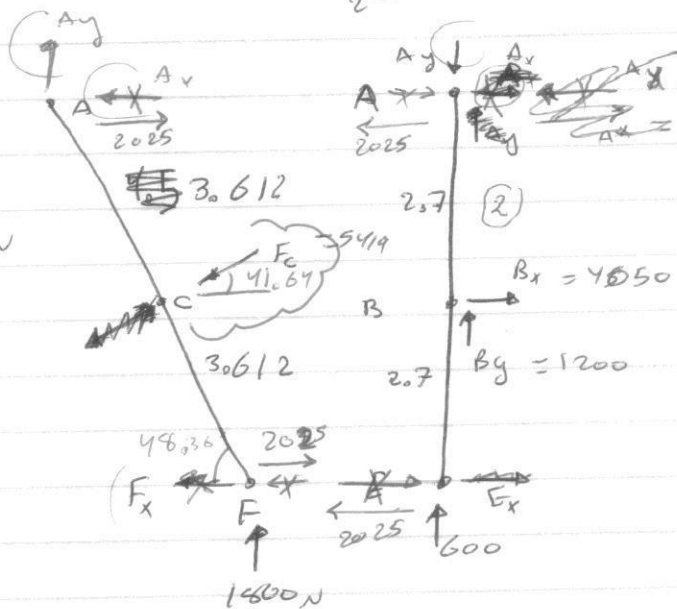 2
Ay
A
Ax
2025
3.612
5419
Fc
41.64
C
3.612
48.36
2025
Fx
F
1800 N
Ay
Ax
A
2025
Ay
2.7
2
B
Bx = 4050
By = 1200
2.7
Ex
2025
600